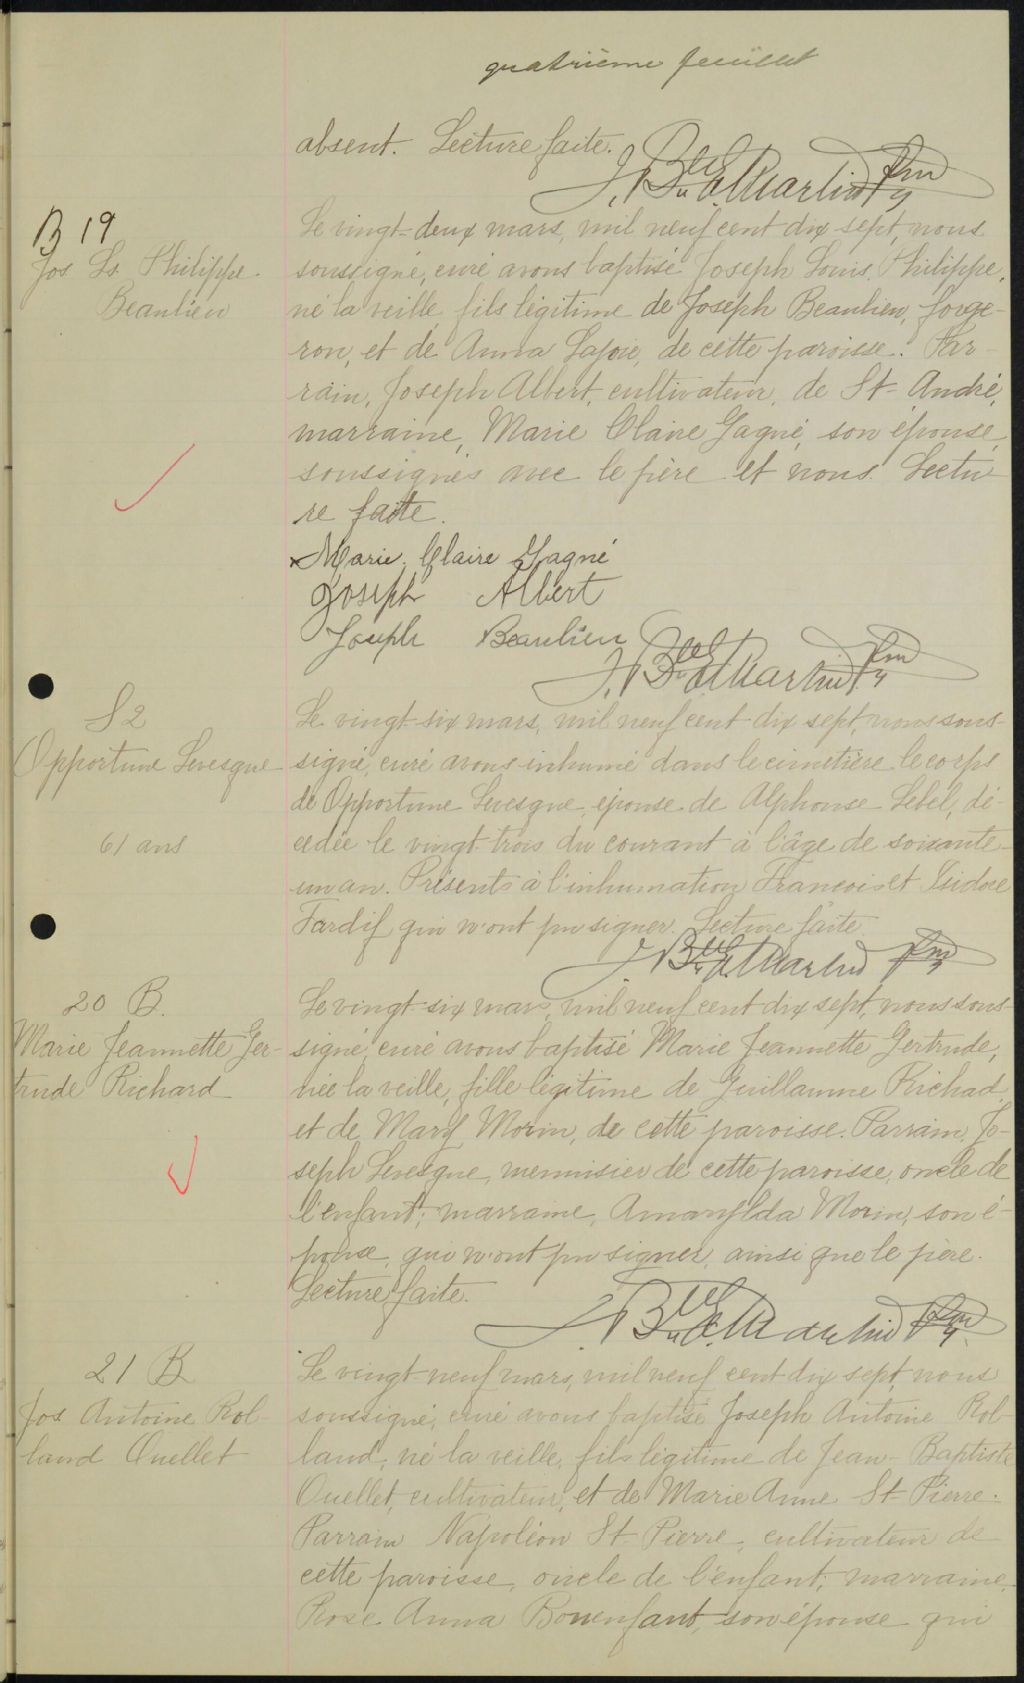 quatrième feuillet
absent. Lecture faite.
J. Bte E. Martin Ptre
B 19
Jos Ls Philippe
Beaulieu
Le vingt-deux mars, mil neuf cent dix sept, nous
soussigné, curé avons baptisé Joseph Louis Philippe,
né la veille, fils légitime de Joseph Beaulieu, forge-
ron, et de Anna Lajoie, de cette paroisse. Par-
rain, Joseph Albert, cultivateur, de St-André,
marraine, Marie Claire Gagné, son épouse,
soussignés avec le père et nous. Lectu-
re faite.
x Marie Claire Gagné
Joseph Albert
Joseph Beaulieu
J. Bte E. Martin Ptre
S 2
Opportune Levesque
61 ans
Le vingt-six mars, mil neuf cent dix sept, nous sous-
signé, curé avons inhumé dans le cimetière le corps
de Opportune Levesque, épouse de Alphonse Lebel, dé-
cedée le vingt-trois du courant à l'âge de soixante-
un an. Présents à l'inhumation François et Isidore
Tardif qui n'ont pu signer. Lecture faite
J. Bte E. Martin Ptre
20 B.
Marie Jeannette Ger-
trude Richard
Le vingt-six mars, mil neuf cent dix sept, nous sous-
signé, curé avons baptisé Marie Jeannette Gertrude,
née la veille, fille légitime de Guillaume Richad
et de Mary Morin, de cette paroisse. Parrain, Jo-
seph Levesque, menuisier de cette paroisse, oncle de
l'enfant; marraine, Amarylda Morin, son é-
pouse, qui n'ont pu signer, ainsi que le père.
Lecture faite.
J. Bte E. Martin Ptre
21 B
Jos Antoine Rol-
land Ouellet
Le vingt-neuf mars, mil neuf cent dix sept, nous
soussigné, curé avons baptisé Joseph Antoine Rol-
land, né la veille, fils légitime de Jean-Baptiste
Ouellet, cultivateur, et de Marie Anne St-Pierre.
Parrain Napoléon St-Pierre, cultivateur de
cette paroisse, oncle de l'enfant; marraine,
Rose Anna Bonenfant, son épouse qui